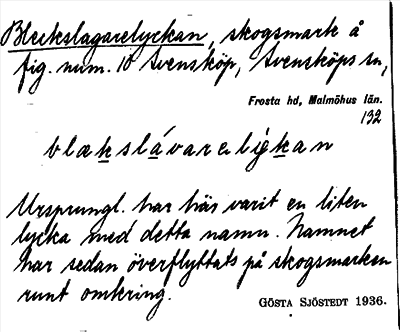 Bleckslagarelyckan, skogsmark å
fig. num. 10 Svensköp, Svensköps sn,
Frosta hd, Malmöhus län.
132
blækslávareligkan
Ursprungl. har här varit en liten
lycka med detta namn. Namnet
har sedan överflyttats på skogsmarken
runt omkring.
GÖSTA SJÖSTEDT 1936.